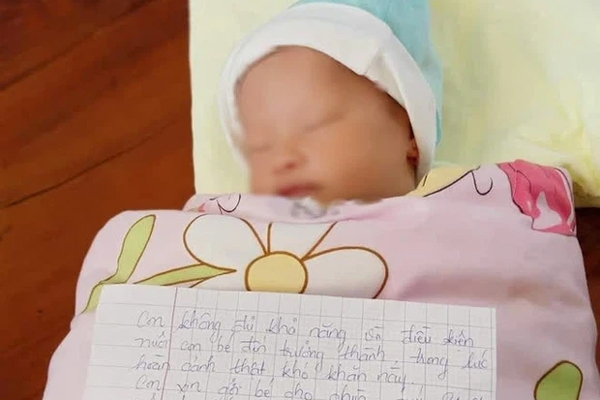 Con không đủ khả năng và điều kiện
nuôi con bé đến trưởng thành trong lúc
hoàn cảnh thật khó khăn này.
Con xin gởi bé cho